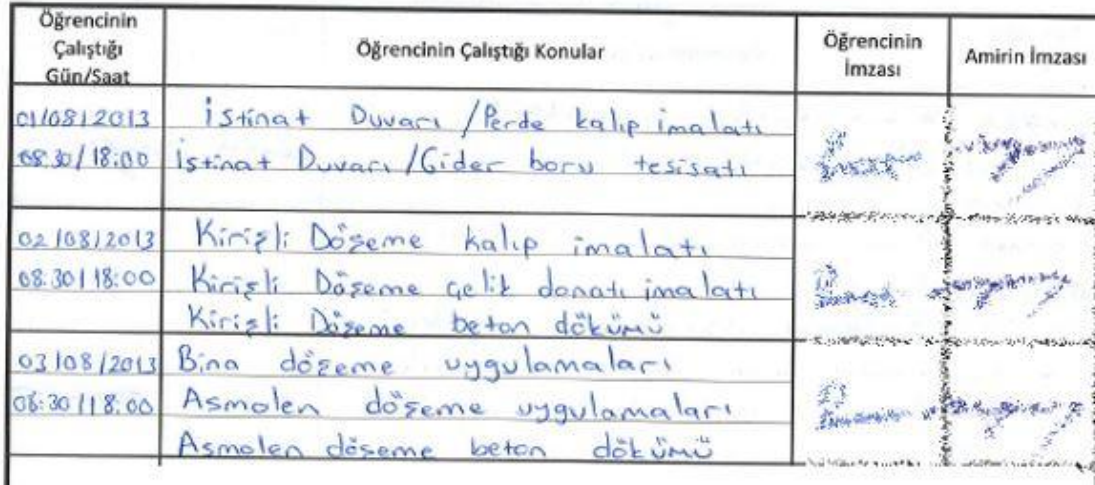 Öğrencinin Çalıştığı Gün/Saat
Öğrencinin Çalıştığı Konular
Öğrencinin İmzası
Amirin İmzası
01/08/2013 İstinat Duvarı /Perde kalıp imalatı
08.30/18:00 İstinat Duvarı /Gider boru tesisatı
02/08/2013 Kirişli Döşeme kalıp imalatı
08:30/18:00 Kirişli Döşeme çelik donatı imalatı
Kirişli Döşeme beton dökümü
03/08/2013 Bina döşeme uygulamaları
08:30/18:00 Asmolen döşeme uygulamaları
Asmolen döşeme beton dökümü